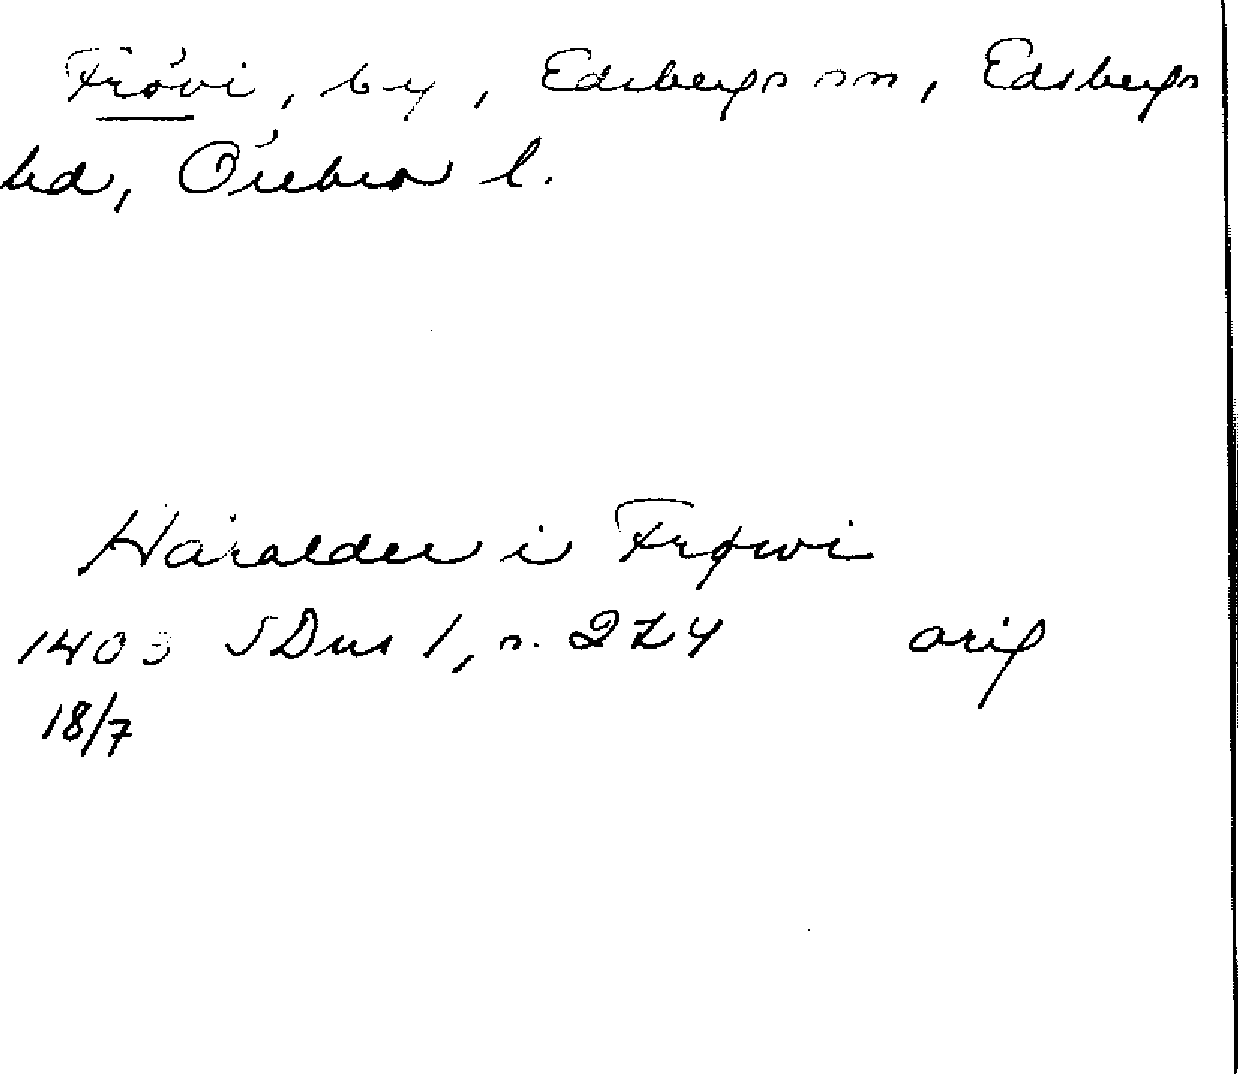 Frövi, by, Edsbergs sn, Edsbergs
hd, Örebro l.
Haralder i Frøwi
1403 SDns 1, s. 274 orig
18/7